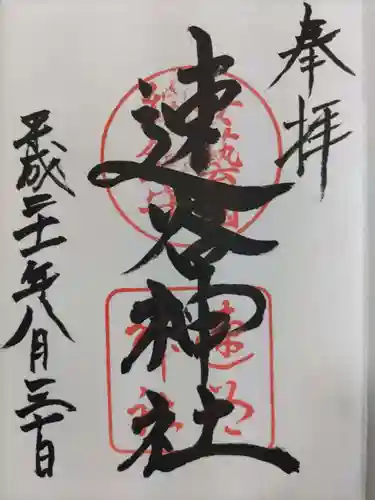 奉拝
速谷神社
平成二十一年八月三十日
速谷
神社